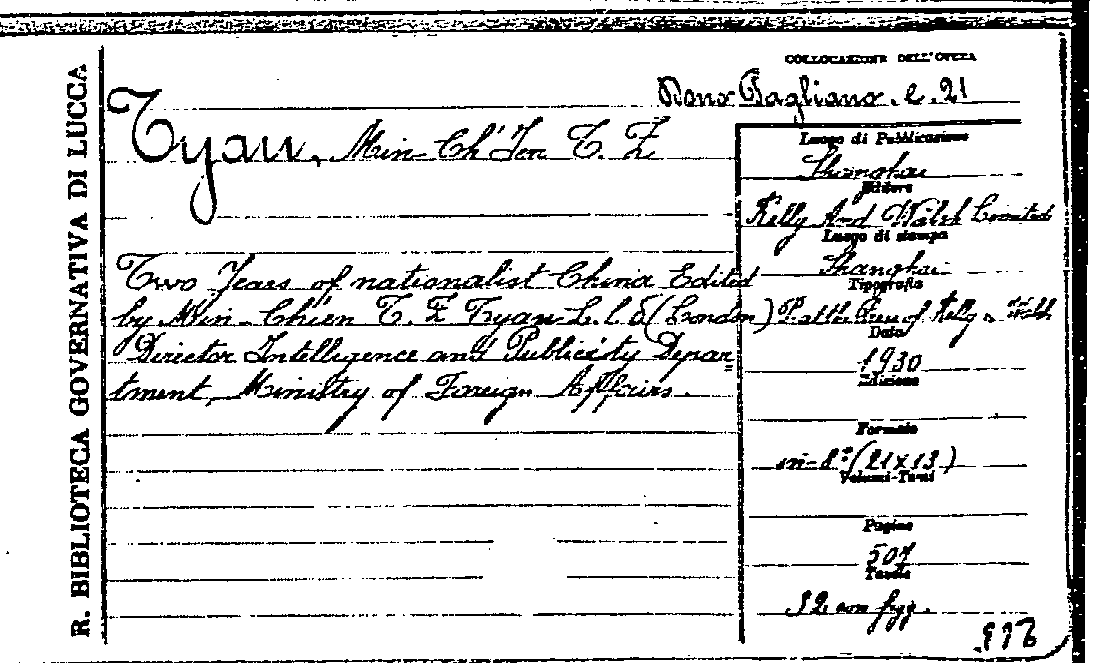 R. BIBLIOTECA GOVERNATIVA DI LUCCA
COLLOCAZIONE DELL'OPERA
Dono Pagliano. e. 21
Tyau, Min-Ch'Ien T. Z
Two Years of nationalist China Edited
by Min-Chien T. Z Tyau L.l.D (London)
Director Intellegence and Publicity Depar
tment, Ministry of Foreign Affairs.
Luogo di Pubblicazione
Shanghai
Editore
Kelly And Walsh Limited
Luogo di stampa
Shanghai
Tipografia
Press of Kelly & Walsh
Data
1930
Edizione
Formato
in-8° (21x13)
Volumi-Tomi
Pagine
507
Tavole
12 con figg.